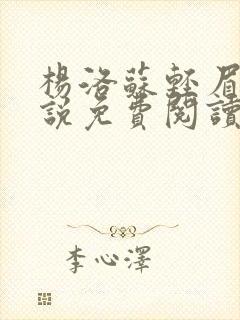 楊洛蘇輕眉
說免費閱讀
李心澤